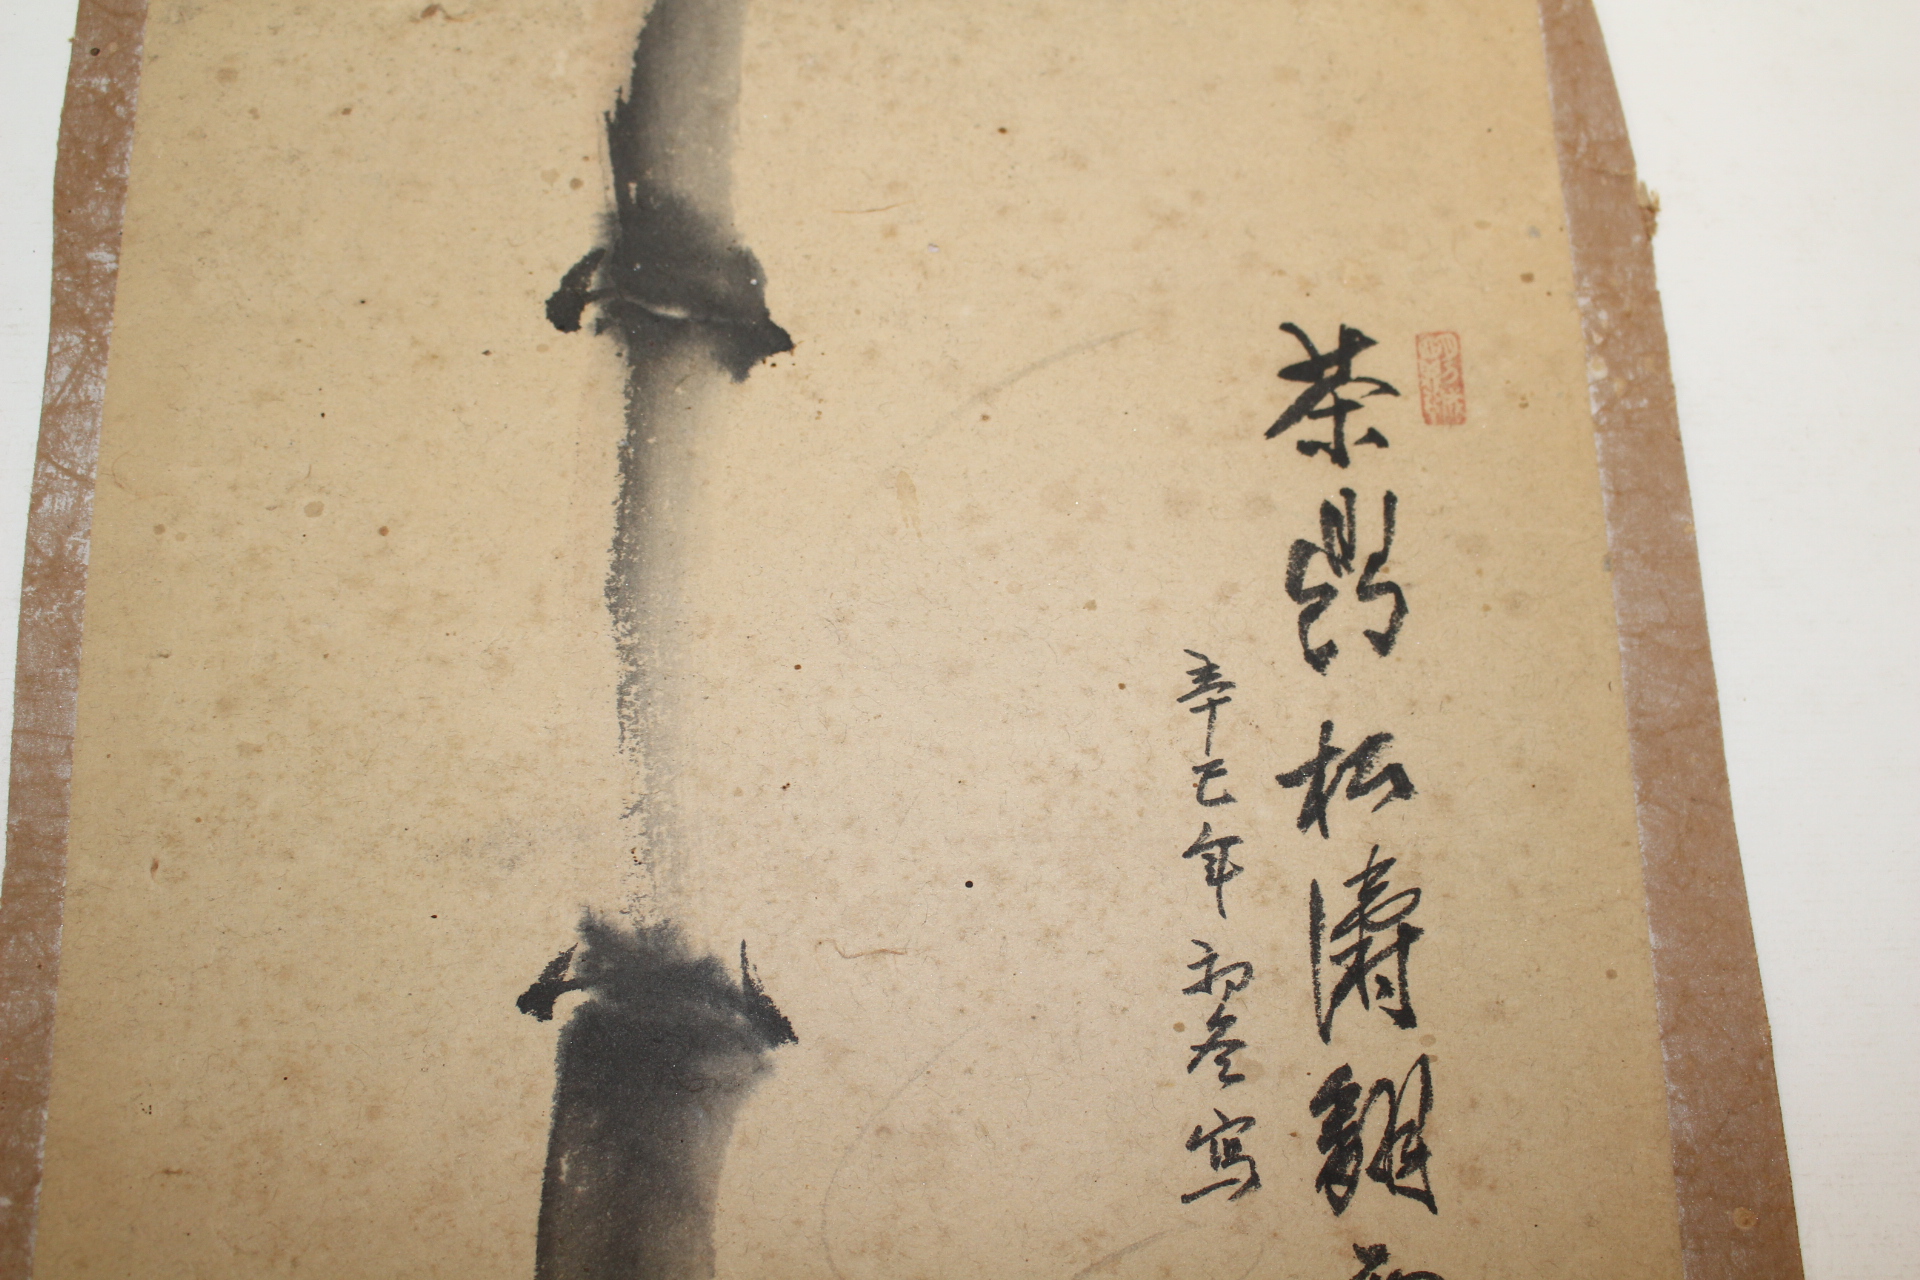 茶鼎松濤翻
辛巳年初冬写